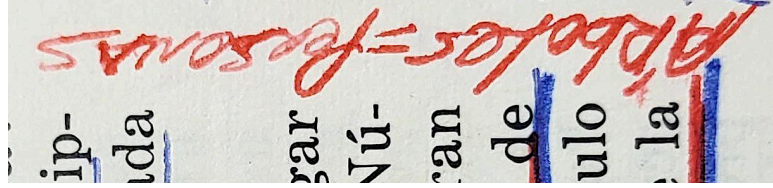 ÁRboles=Personas
ip-
ada
gar
Nú-
ran
de
ulo
e la